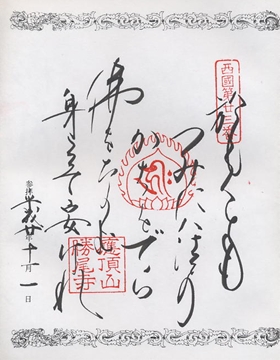 西國第廿三番
おもくとも
つみには法の
かちをでら
佛をたのむ
身こそ安けれ
應頂山
勝尾寺
平成廿年十月一日